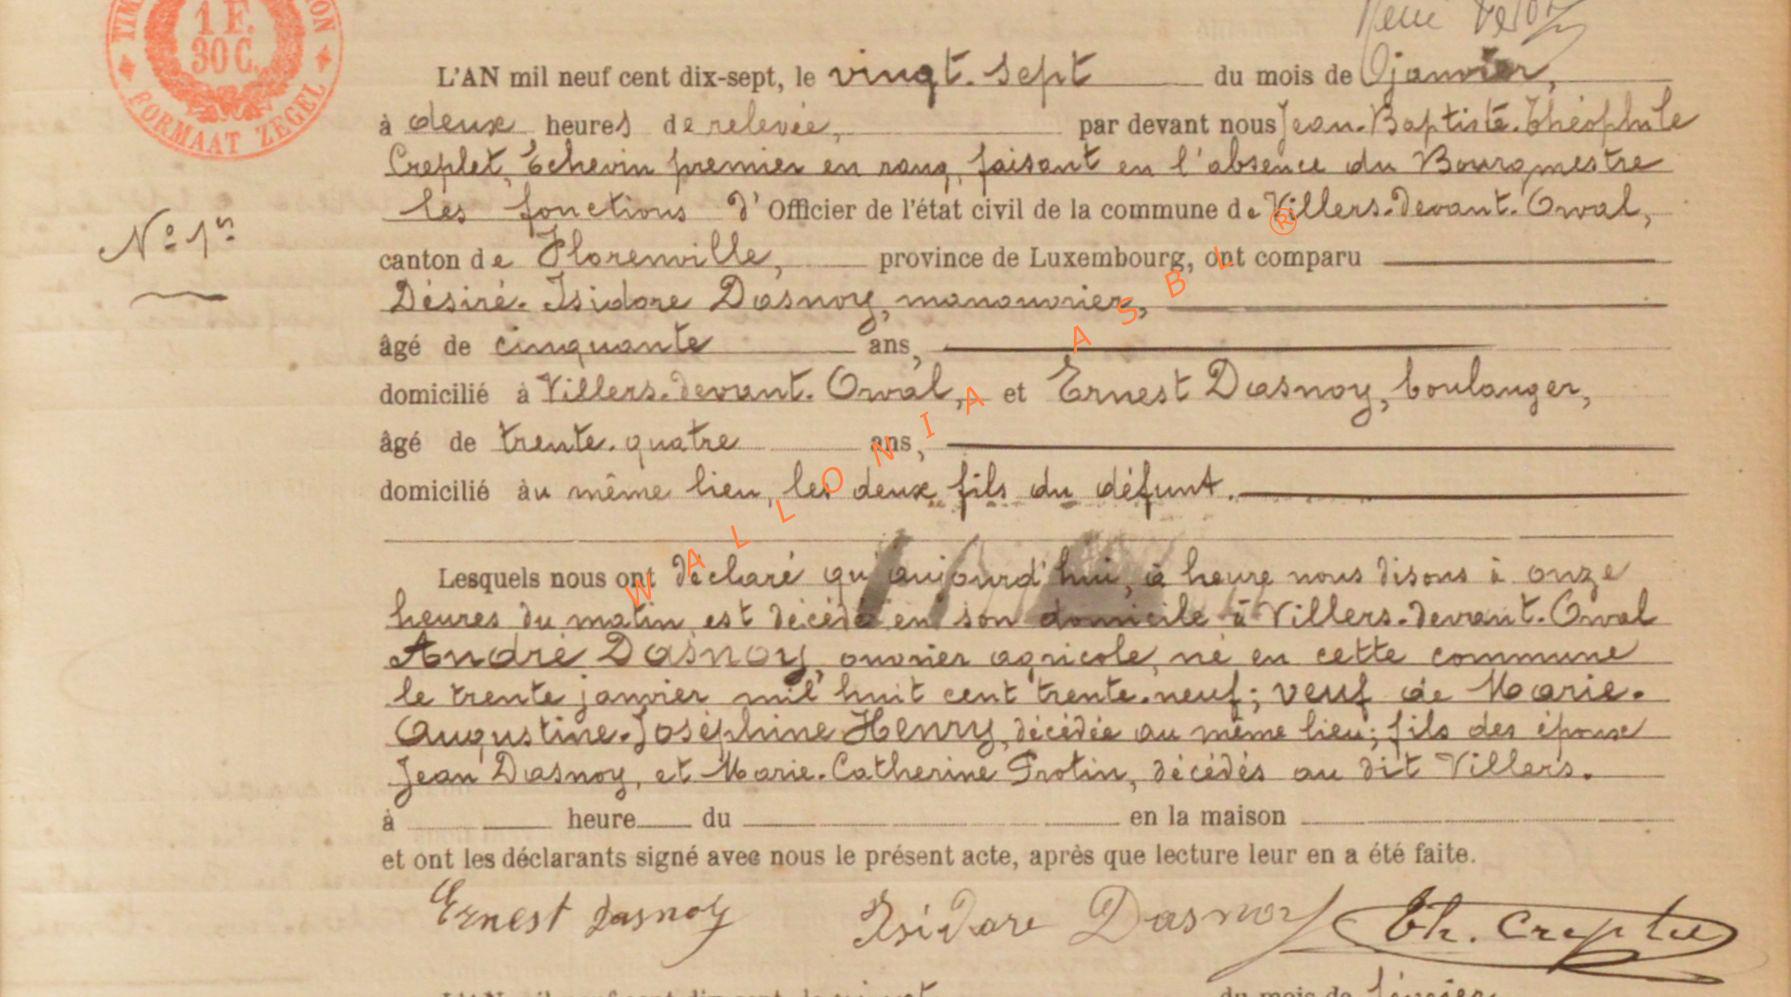 1 F.
30 C.
FORMAAT ZEGEL
René
L'AN mil neuf cent dix-sept, le vingt-sept du mois de janvier,
à deux heures de relevée, par devant nous Jean-Baptiste-Théophile
Creplet, Echevin premier en rang, faisant en l'absence du Bourgmestre
les fonctions d'Officier de l'état civil de la commune de Villers-devant-Orval,
N° 1er
canton de Florenville, province de Luxembourg, ont comparu
Désiré-Isidore Dasnoy, manouvrier,
âgé de cinquante ans,
domicilié à Villers-devant-Orval, et Ernest Dasnoy, boulanger,
âgé de trente-quatre ans,
domicilié au même lieu, les deux fils du défunt.
WALLONIA ASBL ®
Lesquels nous ont déclaré qu'aujourd'hui, à heure nous disons à onze
heures du matin est décédé en son domicile à Villers-devant-Orval
André Dasnoy, ouvrier agricole, né en cette commune
le trente janvier mil huit cent trente-neuf; veuf de Marie-
Augustine-Joséphine Henry, décédée au même lieu; fils des époux
Jean Dasnoy, et Marie-Catherine Protin, décédés au dit Villers.
à heure du en la maison
et ont les déclarants signé avec nous le présent acte, après que lecture leur en a été faite.
Ernest Dasnoy Isidore Dasnoy Th. Creplet
du mois de février